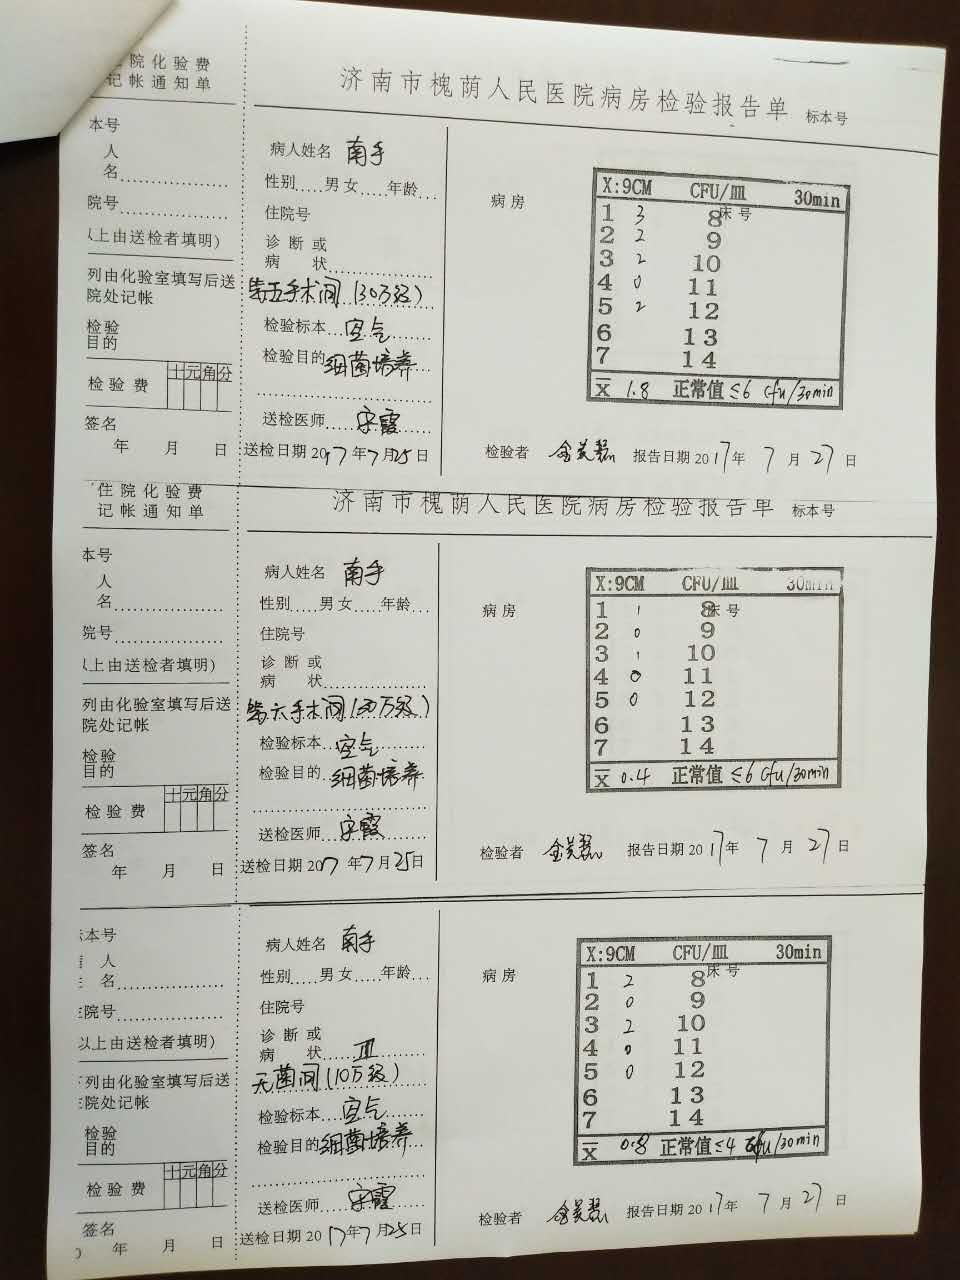 院化验费
记帐通知单
济南市槐荫人民医院病房检验报告单 标本号
本号
人
名
院号
以上由送检者填明)
列由化验室填写后送
院处记帐
检验
目的
检验费 十元角分
签名
年 月 日
病人姓名 南手
性别 男女 年龄
住院号
诊断或
病 状
第五手术间(30万级)
检验标本 空气
检验目的 细菌培养
送检医师 宋霞
送检日期 2017年7月25日
病房
床号
X:9CM CFU/皿 30min
1 3 8
2 2 9
3 2 10
4 0 11
5 2 12
6 13
7 14
X̄ 1.8 正常值≤6 cfu/30min
检验者 报告日期 2017年7月27日
住院化验费
记帐通知单
济南市槐荫人民医院病房检验报告单 标本号
本号
人
名
院号
以上由送检者填明)
列由化验室填写后送
院处记帐
检验
目的
检验费 十元角分
签名
年 月 日
病人姓名 南手
性别 男女 年龄
住院号
诊断或
病 状
第六手术间(30万级)
检验标本 空气
检验目的 细菌培养
送检医师 宋霞
送检日期 2017年7月25日
病房
床号
X:9CM CFU/皿 30min
1 1 8
2 0 9
3 1 10
4 0 11
5 0 12
6 13
7 14
X̄ 0.4 正常值≤6 cfu/30min
检验者 报告日期 2017年7月27日
本号
人
名
院号
以上由送检者填明)
下列由化验室填写后送
院处记帐
检验
目的
检验费 十元角分
签名
年 月 日
病人姓名 南手
性别 男女 年龄
住院号
诊断或
病 状 III
无菌间(10万级)
检验标本 空气
检验目的 细菌培养
送检医师 宋霞
送检日期 2017年7月25日
病房
床号
X:9CM CFU/皿 30min
1 2 8
2 0 9
3 2 10
4 0 11
5 0 12
6 13
7 14
X̄ 0.8 正常值≤4 cfu/30min
检验者 报告日期 2017年7月27日